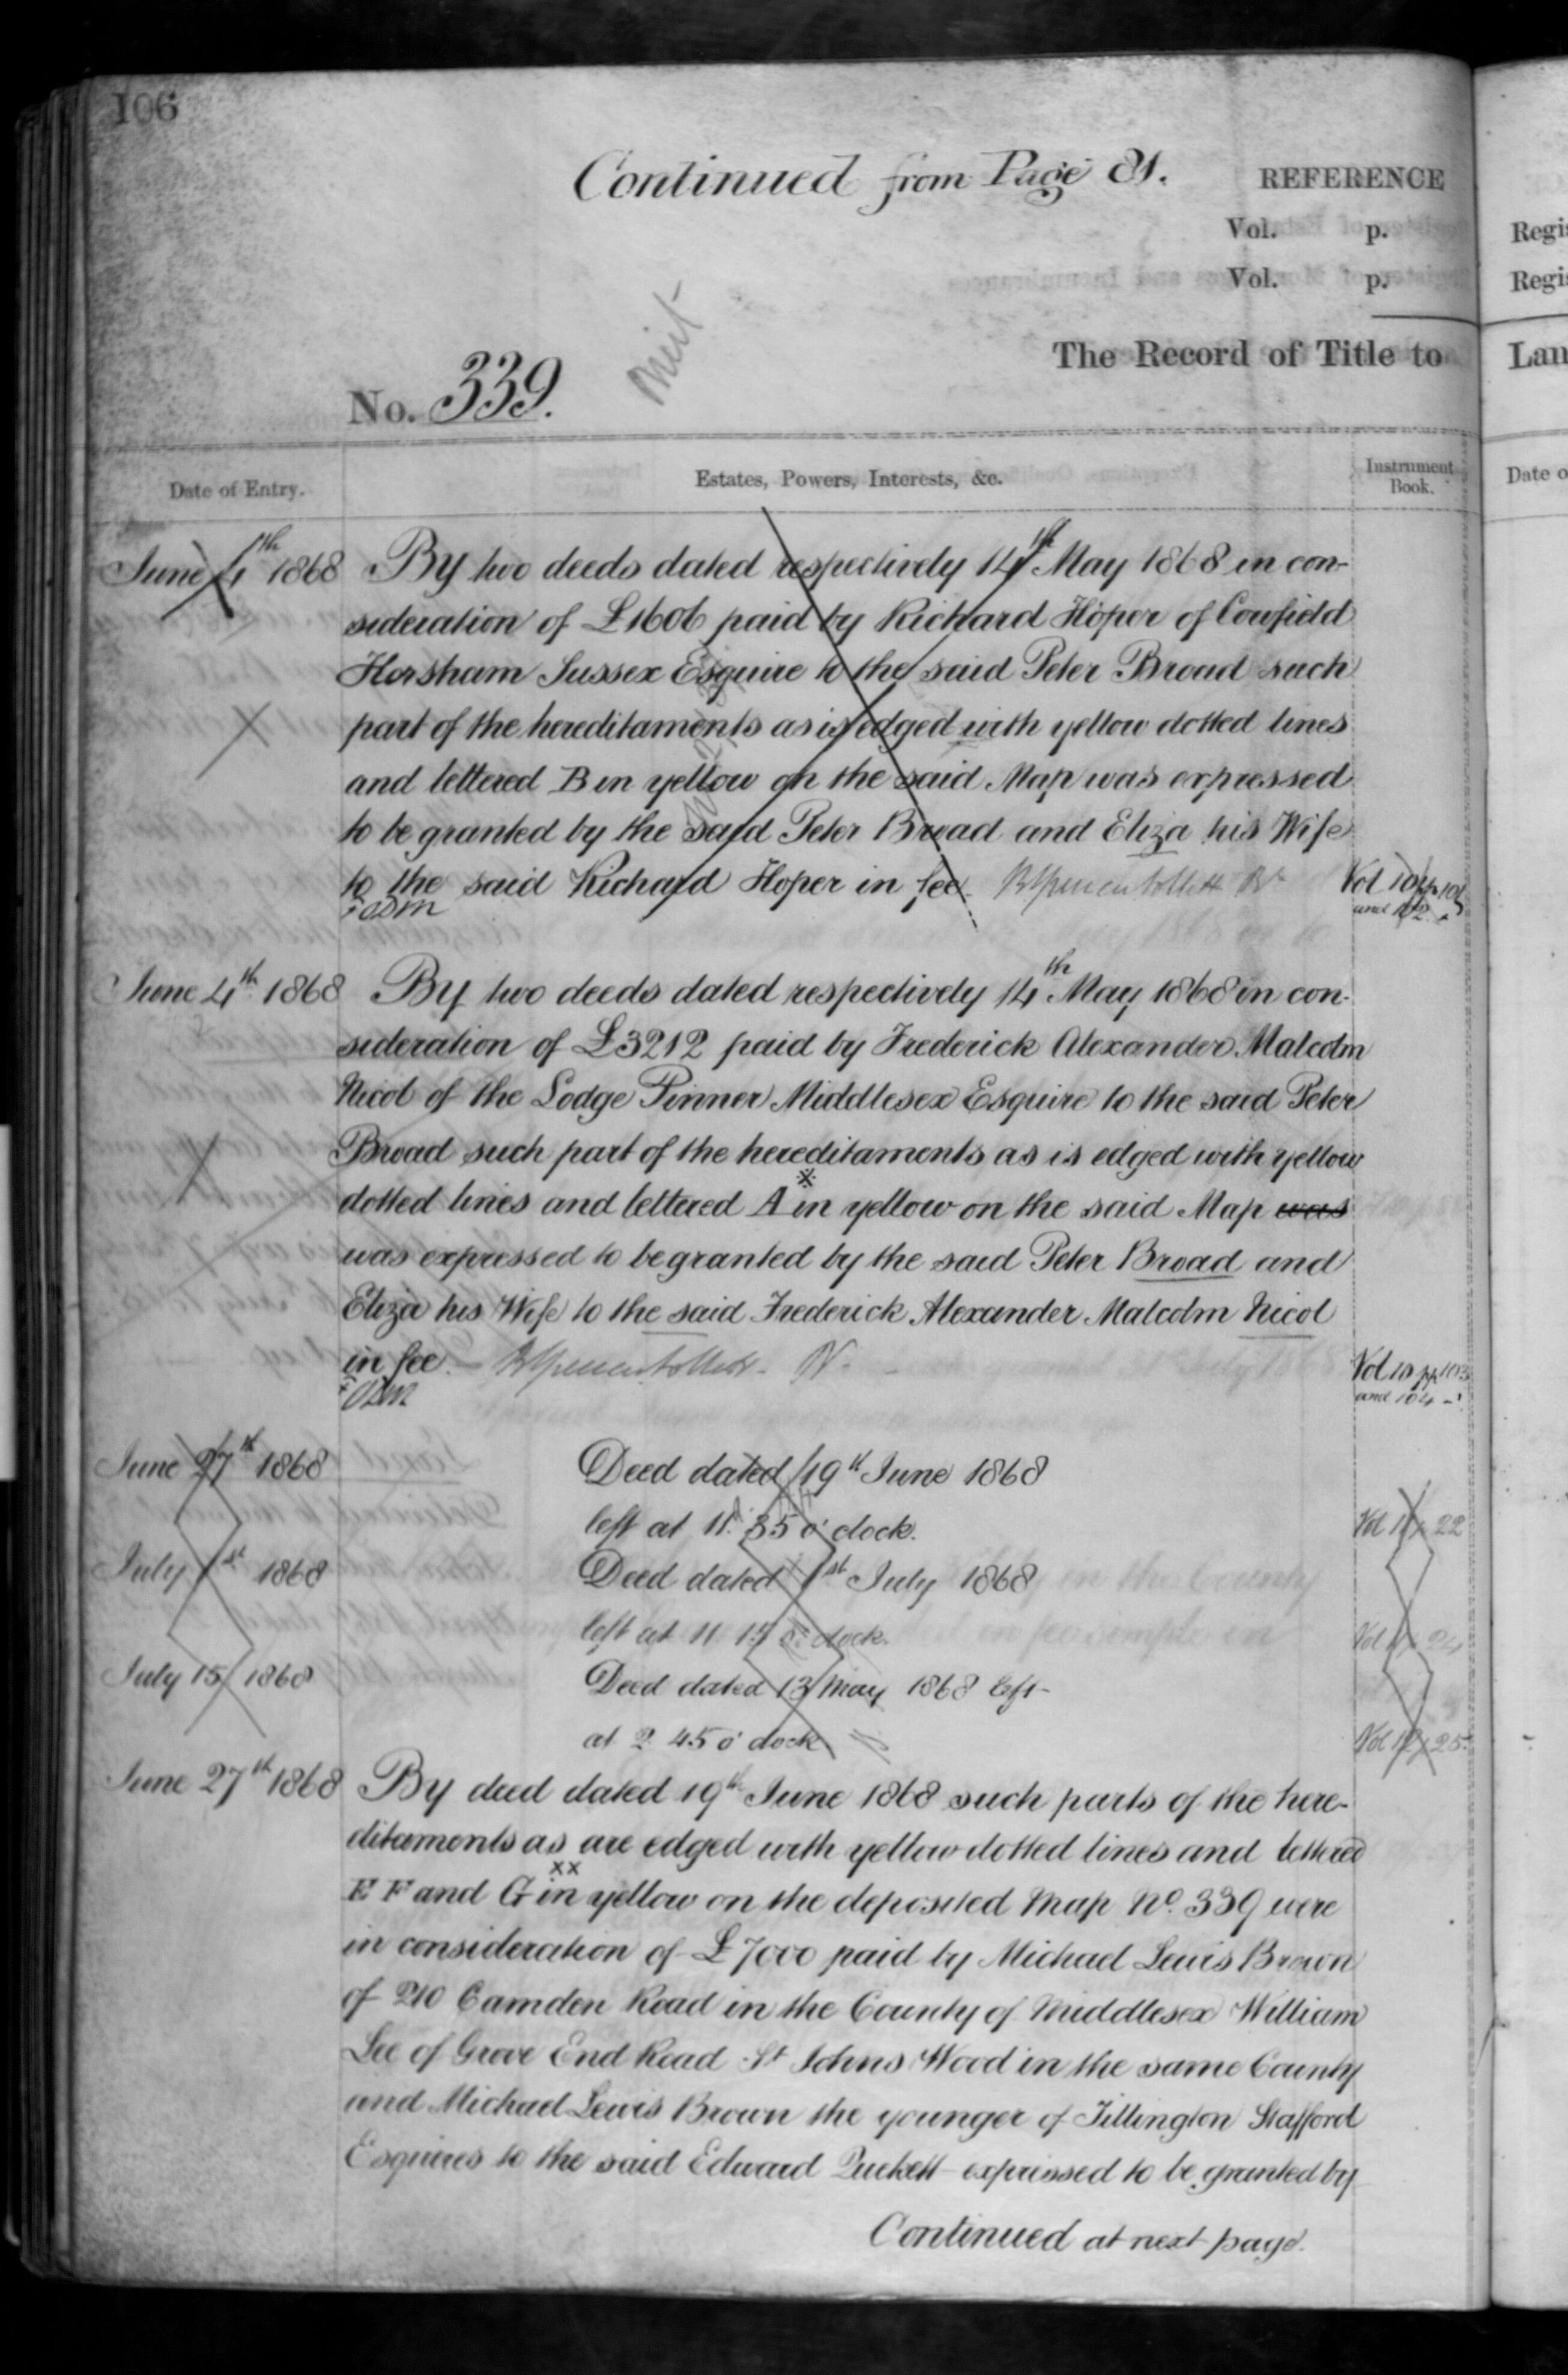 106
Continued from Page 81.
REFERENCE
Vol. p.
Vol. p.
The Record of Title to
No. 339.
Omit
Date of Entry.
Estates, Powers, Interests, &c.
Instrument Book.
June 4th 1868 By two deeds dated respectively 14th May 1868 in con-
sideration of £1606 paid by Richard Hoper of Cowfield
Horsham Sussex Esquire to the said Peter Broad such
part of the hereditaments as is edged with yellow dotted lines
and lettered B in yellow on the said Map was expressed
to be granted by the said Peter Broad and Eliza his Wife
to the said Richard Hoper in fee. Vol 10 pp 101
and 102
June 4th 1868 By two deeds dated respectively 14th May 1868 in con-
sideration of £3212 paid by Frederick Alexander Malcolm
Nicol of the Lodge Pinner Middlesex Esquire to the said Peter
Broad such part of the hereditaments as is edged with yellow
dotted lines and lettered A in yellow on the said Map was
was expressed to be granted by the said Peter Broad and
Eliza his Wife to the said Frederick Alexander Malcolm Nicol
in fee. Vol 10 pp 103
and 104
June 27th 1868 Deed dated 19th June 1868
left at 11. 35 o'clock. Vol 11 p 22
July 1st 1868 Deed dated 1st July 1868
left at 11 15 o'clock. Vol p 24
July 15 1868 Deed dated 13 May 1868 left
at 2 45 o'clock Vol p 25
June 27th 1868 By deed dated 19th June 1868 such parts of the here-
ditaments as are edged with yellow dotted lines and lettered
xx
E F and G in yellow on the deposited Map No. 339 were
in consideration of £7000 paid by Michael Lewis Brown
of 210 Camden Road in the County of Middlesex William
Lee of Grove End Road St Johns Wood in the same County
and Michael Lewis Brown the younger of Tillington Stafford
Esquires to the said Edward Puckett expressed to be granted by
Continued at next page.
Regis
Regis
Lan
Date o